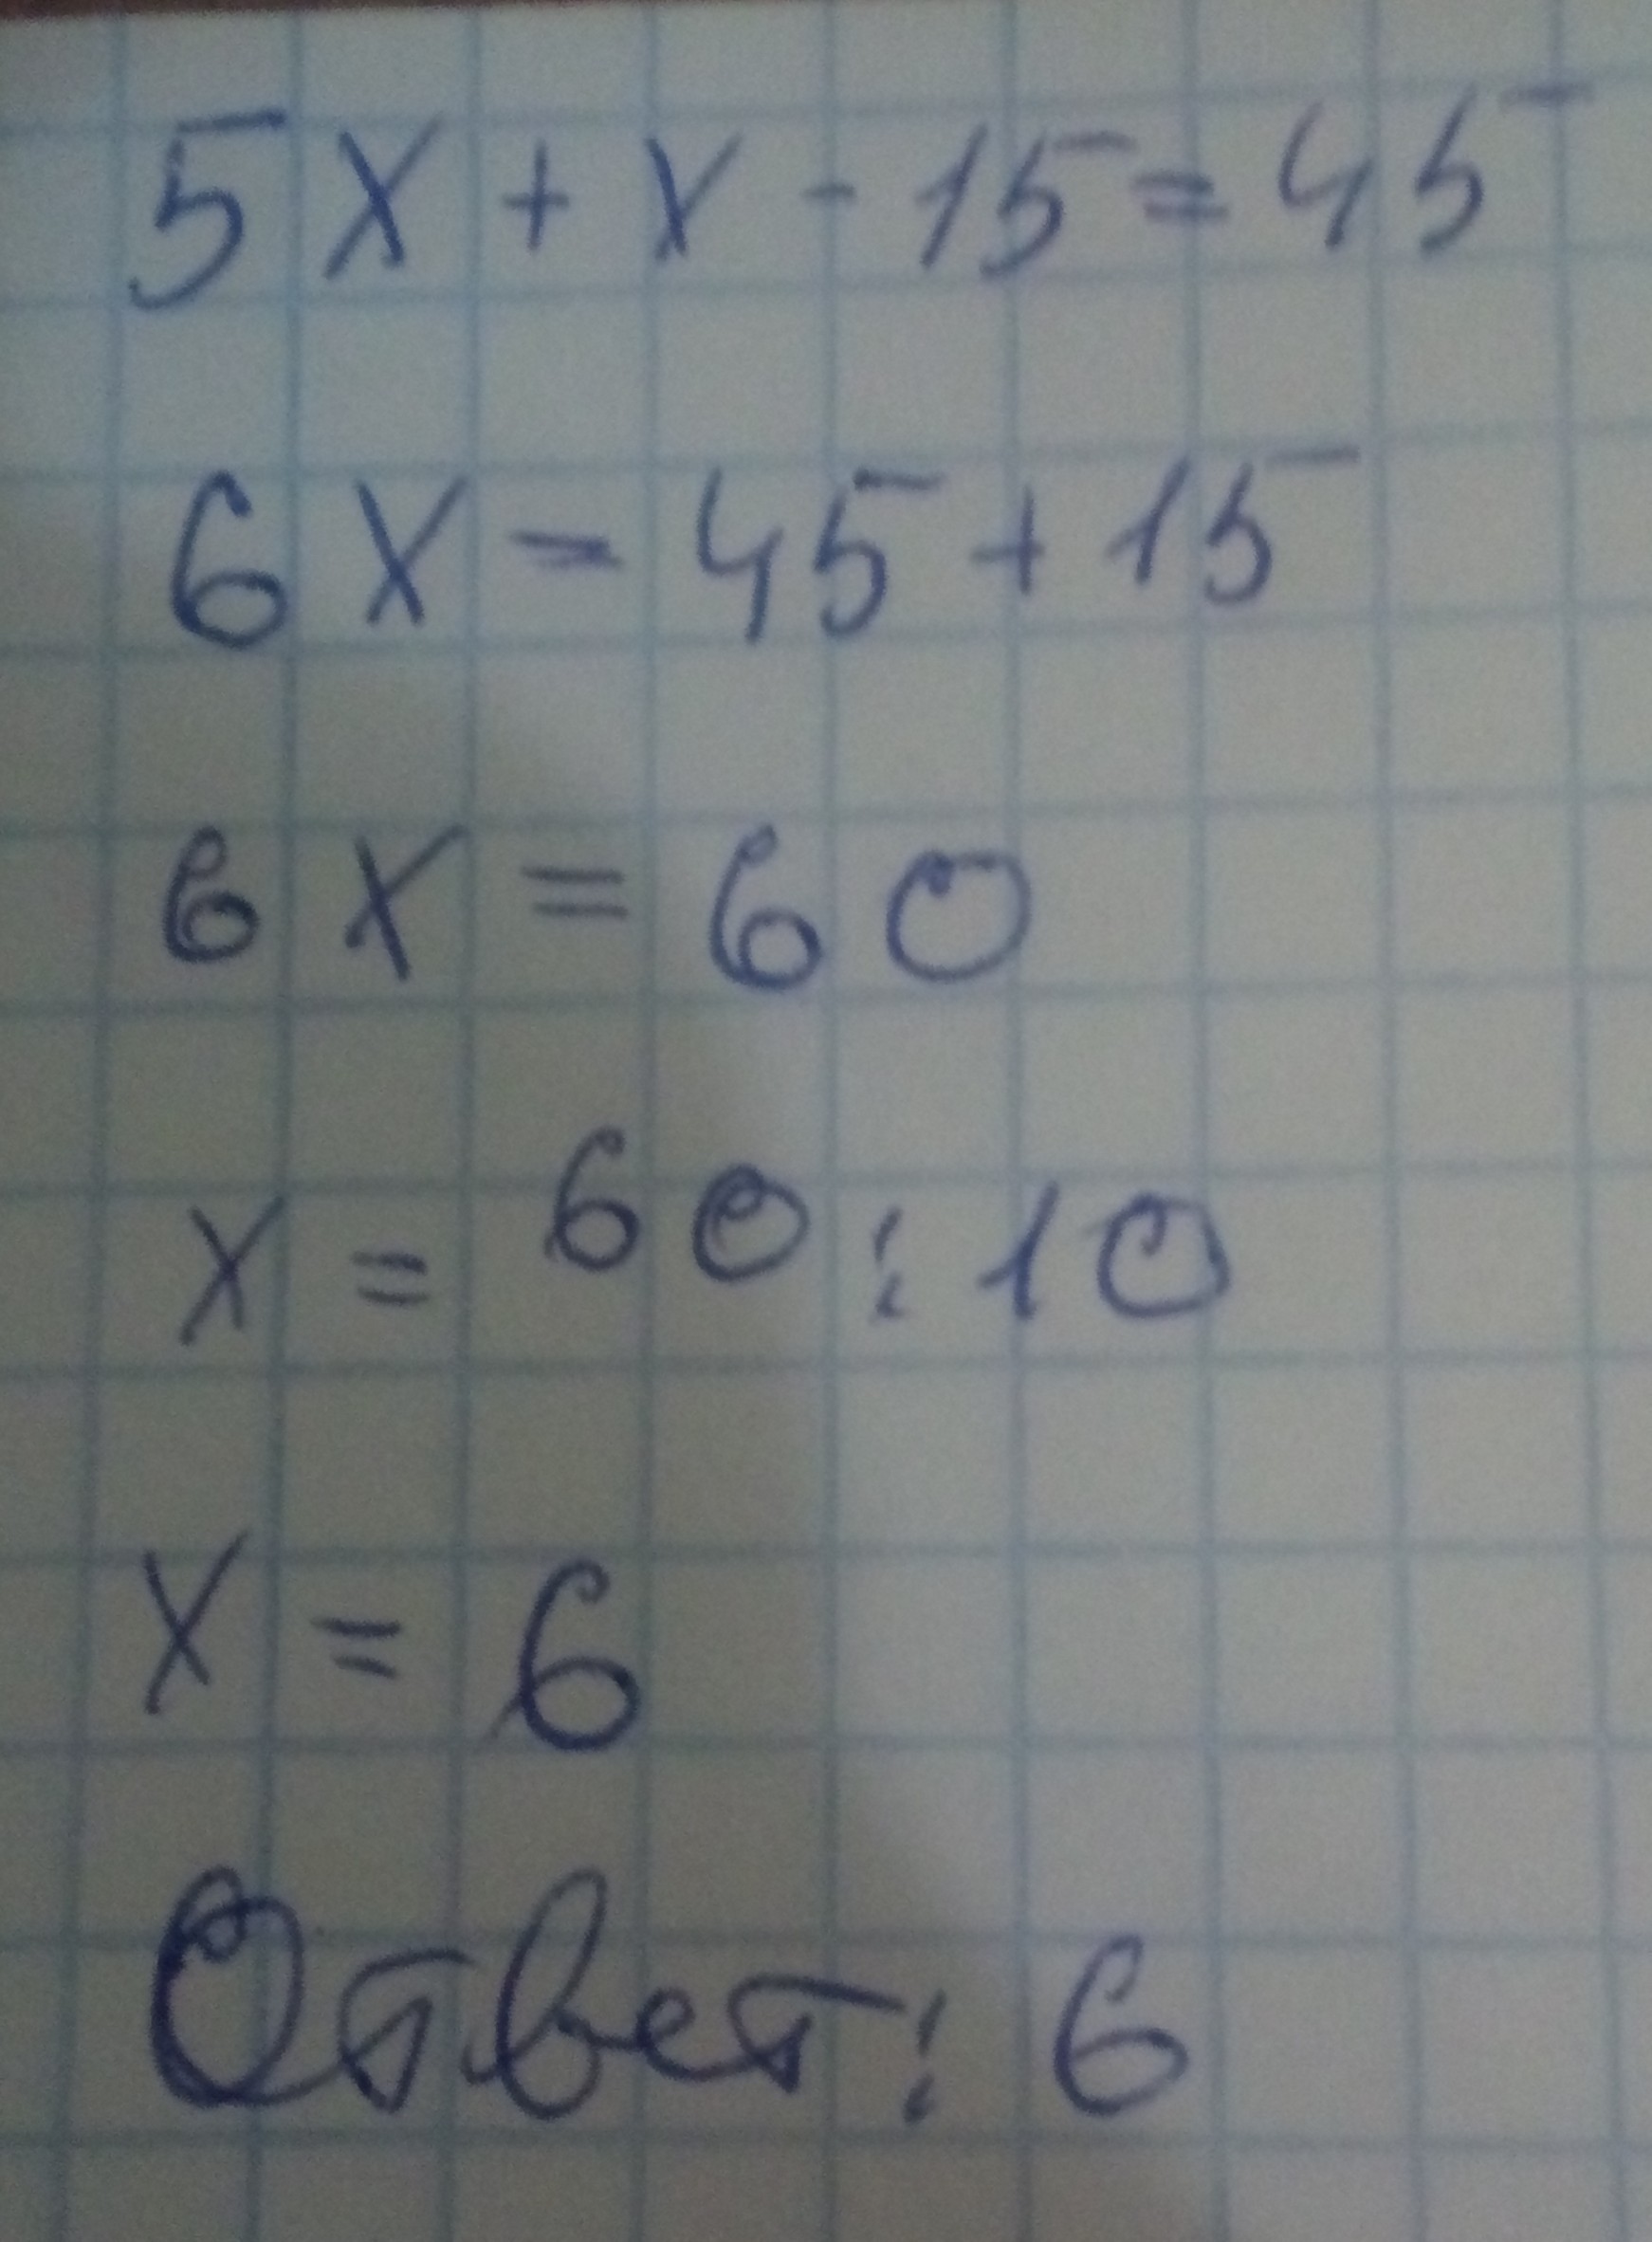 5x + x - 15 = 45
6x = 45 + 15
6x = 60
x = 60 : 10
x = 6
Ответ: 6